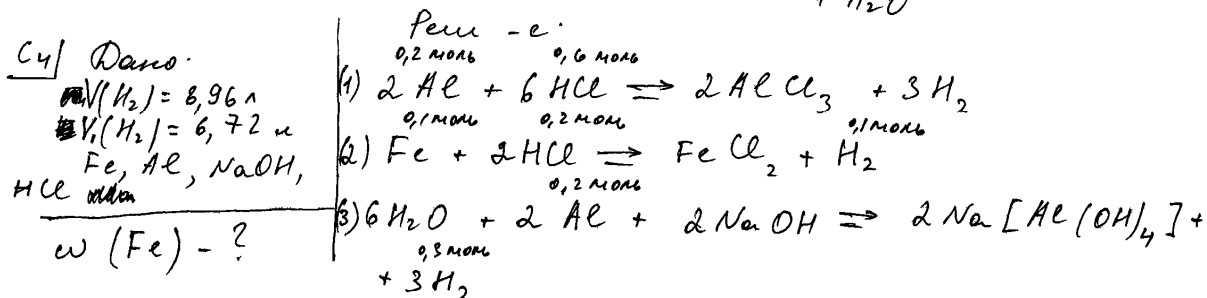 + H₂O
C4 Дано:
V(H₂) = 8,96 л
V₁(H₂) = 6,72 л
Fe, Al, NaOH,
HCl
ω (Fe) - ?
Реш-е:
0,2 моль 0,6 моль
(1) 2Al + 6HCl = 2AlCl₃ + 3H₂
0,1 моль 0,2 моль 0,1 моль
(2) Fe + 2HCl = FeCl₂ + H₂
0,2 моль
(3) 6H₂O + 2Al + 2NaOH = 2Na[Al(OH)₄] +
0,3 моль
+ 3H₂